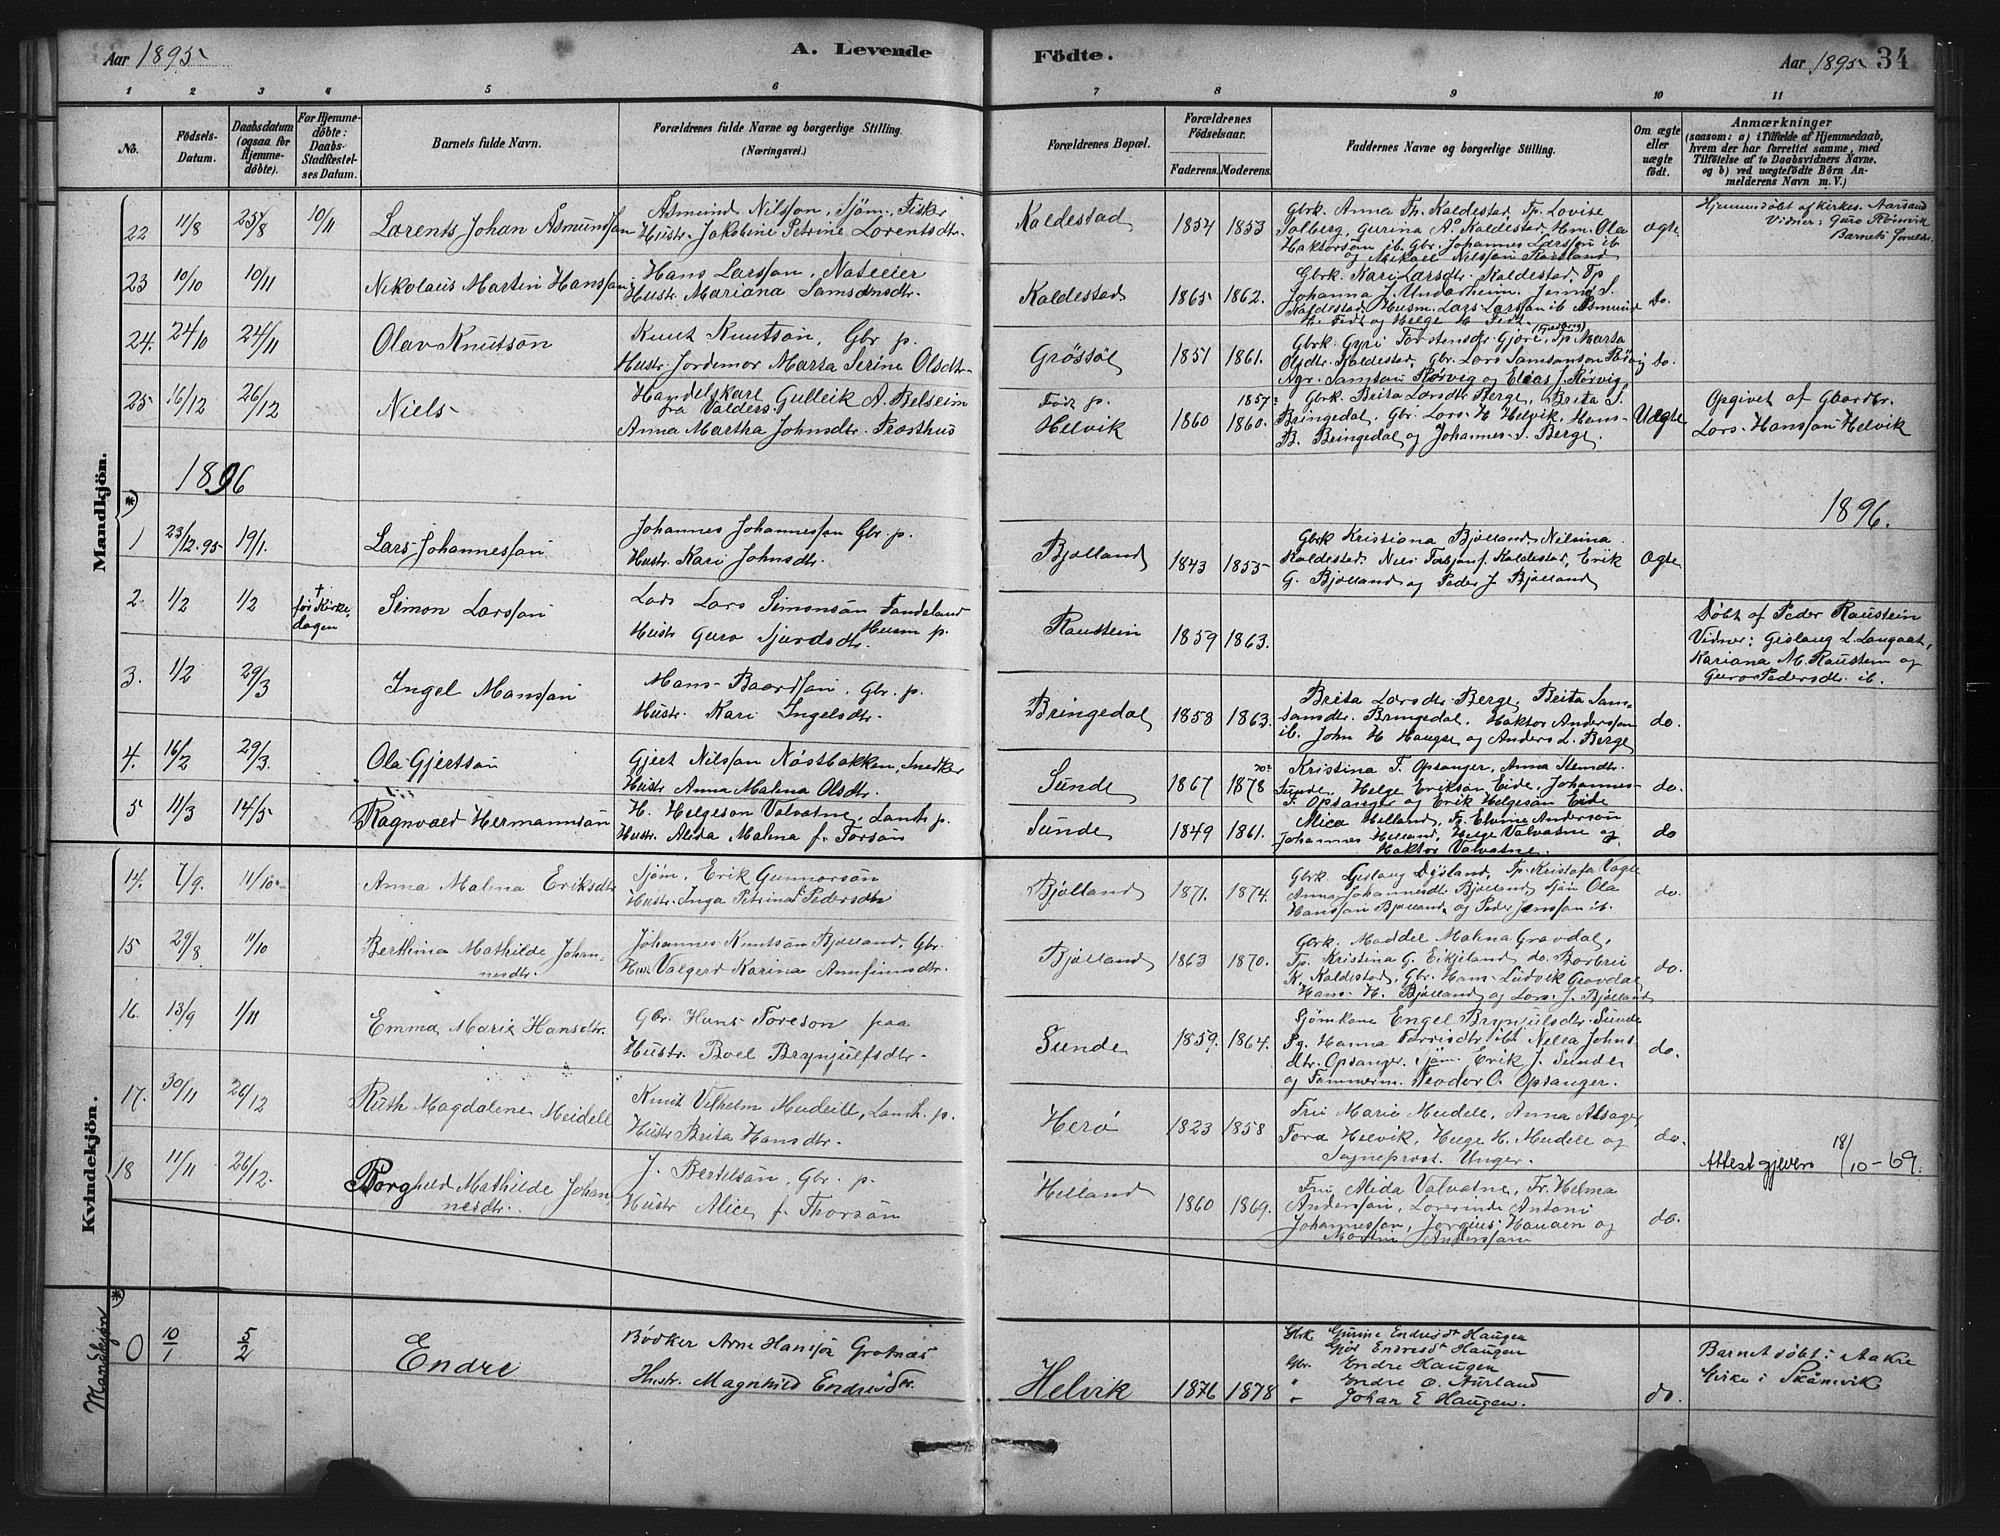 Aar 1895
A. Levende
Födte.
Aar 1895
34
1 2 3 4 5 6 7 8 9 10 11
No.
Födsels-Datum.
Daabsdatum (ogsaa for Hjemmedöbte).
For Hjemmedöbte: Daabs-Stadfæstelses Datum.
Barnets fulde Navn.
Forældrenes fulde Navne og borgerlige Stilling.
(Næringsvei.)
Forældrenes Bopæl.
Forældrenes Födselsaar.
Faderens. Moderens.
Faddernes Navne og borgerlige Stilling.
Om ægte eller uægte födt.
Anmærkninger
(saasom: a) i Tilfælde af Hjemmedaab,
hvem der har forrettet samme, med
Tilföielse af to Daabsvidners Navne.
og b) ved uægtefödte Börn Anmelderens Navn m. V.)
Mandkjön.
22 11/8 25/8 10/11 Lorents Johan Åsmundsson
Åsmund Nilsson, Sjöm. Fisker
Hustr. Jakobine Petrine Lorentsdtr.
Kaldestad 1854 1853
Gbrk. Anna Th. Kaldestad, Tp. Lovise
Solberg, Gurina A. Kaldestad, Hm. Ola
Haktorsön ib. Gbr. Johannes Larsson ib
og Mikael Nilsson
ægte
Hjemmedöbt af kirkes. Aarsand
Vidner: Guro Röinvik
Barnets
23 10/10 10/11 Nikolaus Martin Hansson
Hans Larsson,
Hustr. Mariana Samsonsdtr.
Kaldestad 1865 1862.
Gbrk. Kari Larsdtr. Kaldestad, Tp
Johanna J. Undarheim,
Kaldestad, Husm. Lars Larsson ib Åsmund
H. Födt og Helge H. Födt
Do.
24. 24/10 24/11 Olav Knutsön
Knut Knutsön, Gbr p.
Hustr. Jordemor Marta Serine Olsdtr.
Grössöl 1851 1861.
Gbrk Gyri Torstensdtr. Gjöre, Tp Marta
Olsdtr. Kaldestad, Gbr. Lars Samsonson Rörvig
Ngr. Samson Rörvig og Elias J. Rörvig
Do.
25 16/12 26/12 Niels
Handelskarl Gulleik A. Belseim
fra Valders.
Anna Martha Johnsdtr. Trosthus
Född p.
Helvik 1860 1857? 1860.
Gbrk. Brita Larsdtr Berge, Brita S.
Bringedal, Gbr. Lars H Helvik, Hans
B. Bringedal og Johannes S. Berge.
Uægte
Opgivet af Gbardbr.
Lars Hansson Helvik
1896
1896.
1 23/12.95 19/1. Lars Johannesson
Johannes Johannesson Gbr p.
Hustr. Kari Johnsdtr.
Bjolland 1843 1855
Gbrk Kristiana Bjölland, Nilsina
Kaldestad, Nils Torbjörnf. Kaldestad, Erik
G. Bjölland og Peder J Bjölland
Ogte
2 1/2 1/2 † før Kirkedagen Simon Larsson
Lars Lars Simonsön Tandeland
Husm p.
Hustr Guro Sjurdsdtr.
Raustein 1859 1863.
Döbt af Peder Raustein
Vidner: Gislaug L. Langaat,
Kariana M. Raustein og
Guro Pedersdtr. ib.
3. 1/2 29/3 Ingel Monsson
Mons Baardson, Gbr. p.
Hustr. Kari Ingelsdtr.
Bringedal 1858 1863.
Brita Larsdtr Berge, Brita Samsamsdtr. Bringedal, Haktor Andersson
ib. John H Hauge og Anders L. Berge
do.
4. 16/2 29/3. Ola Gjertson
Gjert Nilsson Nöstbakken, Snedker
Hustr Anna Malena Olsdtr.
Sunde 1867 1878 70?
Kristina T. Opsanger, Anna Stendtr.
Sunde, Helge Eriksön Eide, Johannes
T. Opsanger og Erik Helgesön Eide
do.
5 11/3 14/5 Ragnvald Hermannsön
H. Helgeson Valvatne, Lanh p.
Hustr. Alida Malna f. Torsön
Sunde 1849 1861.
Alice Helland, Fr. Elvine Andersön
Johannes Helland, Helge Valvatne og
Haktor Valvatne.
do
Kvindekjön.
14. 7/9. 11/10 Anna Malena Eriksdtr
Sjöm. Erik Gunnarsön
Hustr. Inga Petrina Pedersdtr
Bjölland 1871. 1874.
Gbrk. Gislaug Dysland, Tp. Kristofa Vagle
Anna Johannesdtr Bjölland, Sjöm Ola
Hansson Bjölland og Peder Jonsson ib.
do.
15 29/8 11/10 Berthina Mathilde Johannesdtr.
Johannes Knutsön Bjölland, Gbr.
Hus. Valgerd Karina Annfinnsdtr.
Bjölland 1863 1870.
Gbrk. Maddel Malena Gravdal,
Tp. Kristina G. Eikjeland do. Borbrei
K. Kaldestad, Gbr. Hans Ludvik Gravdal
Hans H. Bjölland og Lars J. Bjölland
do.
16. 13/9 1/11 Emma Marie Hansdtr.
Gbr. Hans Toreson paa
Hustr. Boel Brynjulfsdtr.
Sunde 1859. 1864.
Sjömkone Engel Brynjulsdtr. Sunde
Pg. Hanna Torrisdtr ib. Nella Johnsdtr. Opsanger, Sjöm. Erik J. Sunde
og Tömmerm. Teodor O. Opsanger.
do.
17. 30/11 26/12 Ruth Magdalene Meidell
Knut Vilhelm Meidell, Lanh. p.
Hustr Brita Hansdtr.
Herö 1823 1858
Fru Marie Meidell, Anna Alsager
Tora Helvik, Helge H. Meidell og
Sogneprost Unger.
do.
18 11/11 26/12. Borghild Mathilde Johannesdtr.
J. Bertelsön, Gbr. p.
Hustr Alice f. Thorsön
Helland 1860 1869.
Fru Alida Valvatne, Fr. Helma
Anderssön, Lovrinde Antoni
Johannesson, Jorgius Hauaen og
Martin Anderssön
do.
Attest gjeven 18/10-69.
Mandkjön
0 10/1 5/2 Endre
Bödker Arne Hansön Grotnæs
Hustr. Magnhild Endresdtr.
Helvik 1876 1878
Gbrk Gurine Endresdtr Haugen
Gjör Endresdtr Haugen
Gbr. Endre Haugen
" Endre O. Aurland
" Johan E Haugen.
do.
Barnet döbt i Aakre
kirke i Skånevik